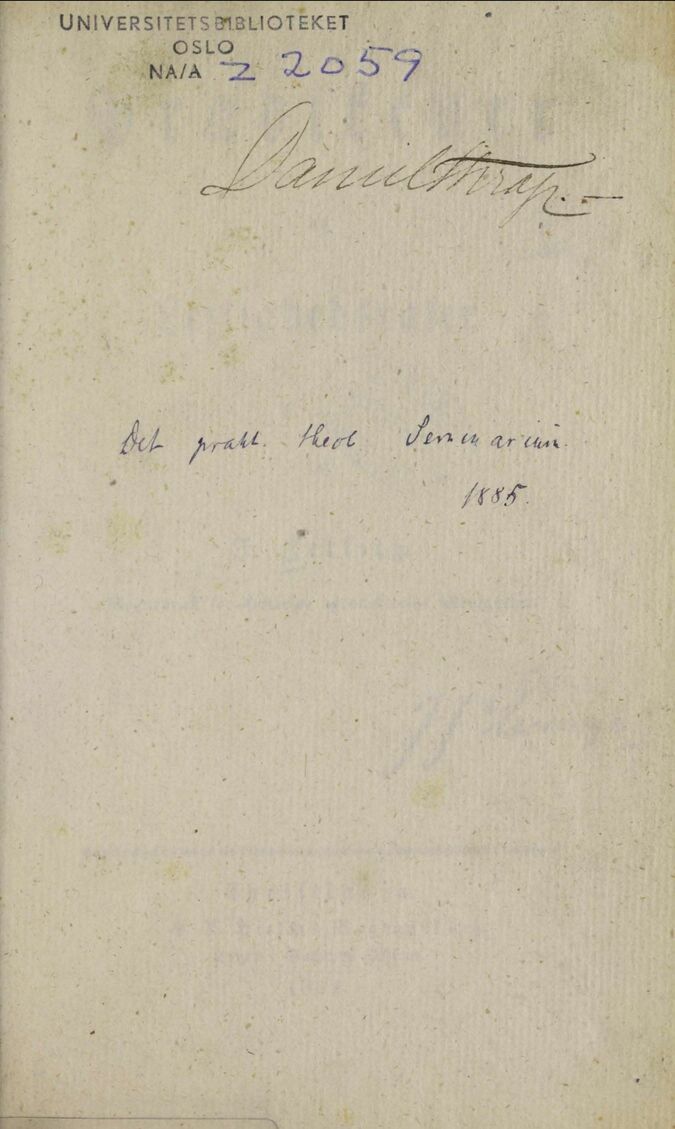 UNIVERSITETSBIBLIOTEKET
OSLO
NA/A Z 2059
Daniel Thrap.
Det prakt. theol Seminarium.
1885.